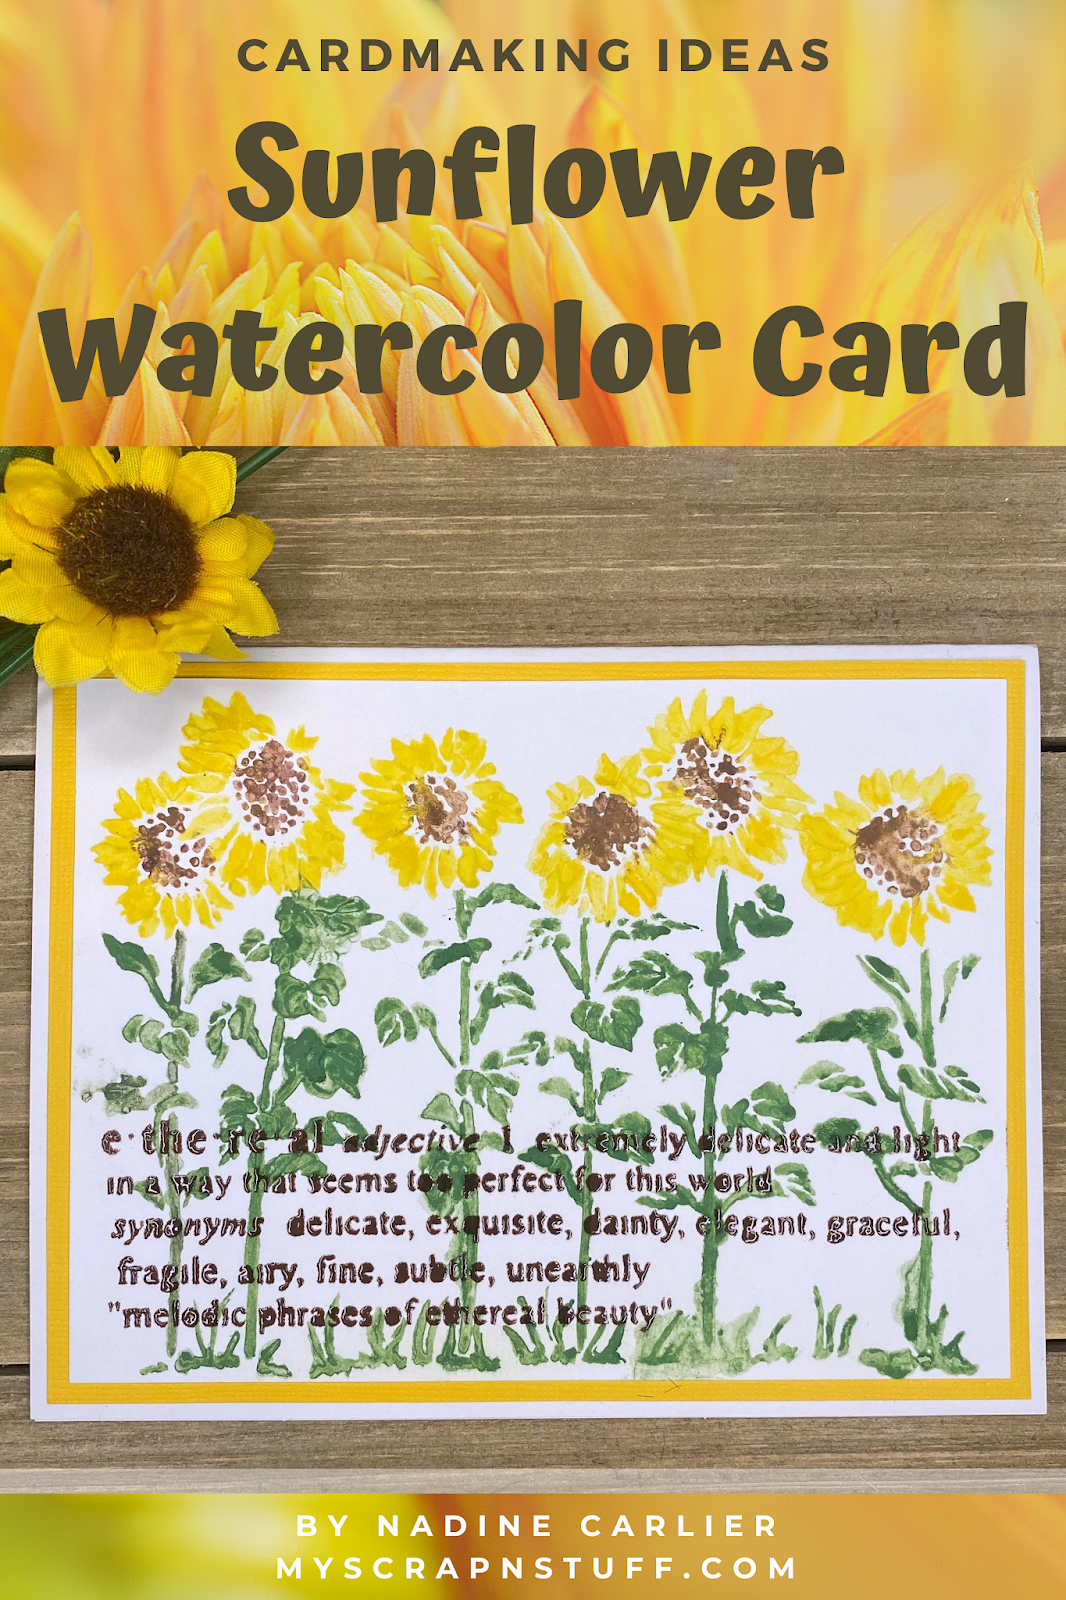 CARDMAKING IDEAS
Sunflower
Watercolor Card
e·the·re·al adjective 1 extremely delicate and light
in a way that seems too perfect for this world
synonyms delicate, exquisite, dainty, elegant, graceful,
fragile, airy, fine, subtle, unearthly
"melodic phrases of ethereal beauty"
BY NADINE CARLIER
MYSCRAPNSTUFF.COM